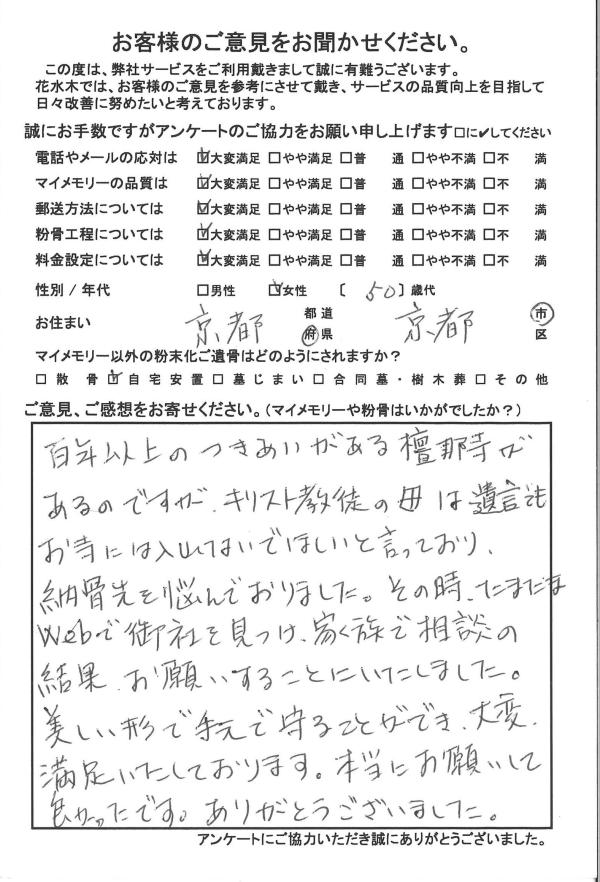 お客様のご意見をお聞かせください。
この度は、弊社サービスをご利用戴きまして誠に有難うございます。
花水木では、お客様のご意見を参考にさせて戴き、サービスの品質向上を目指して
日々改善に努めたいと考えております。
誠にお手数ですがアンケートのご協力をお願い申し上げます□に✔してください
電話やメールの応対は ☑大変満足 □やや満足 □普 通 □やや不満 □不 満
マイメモリーの品質は ☑大変満足 □やや満足 □普 通 □やや不満 □不 満
郵送方法については ☑大変満足 □やや満足 □普 通 □やや不満 □不 満
粉骨工程については ☑大変満足 □やや満足 □普 通 □やや不満 □不 満
料金設定については ☑大変満足 □やや満足 □普 通 □やや不満 □不 満
性別 / 年代 □男性 ☑女性 〔 50 〕歳代
お住まい 京都 都道府県 京都 市区
マイメモリー以外の粉末化ご遺骨はどのようにされますか?
□散 骨 ☑自宅安置 □墓じまい □合同墓・樹木葬 □その他
ご意見、ご感想をお寄せください。(マイメモリーや粉骨はいかがでしたか?)
百年以上のつきあいがある檀那寺が
あるのですが、キリスト教徒の母は遺言でも
お寺には入れないでほしいと言っており、
納骨先を悩んでおりました。その時、たまたま
Webで御社を見つけ、家族で相談の
結果、お願いすることにいたしました。
美しい形で手元で守ることができ、大変、
満足いたしております。本当にお願いして
良かったです。ありがとうございました。
アンケートにご協力いただき誠にありがとうございました。